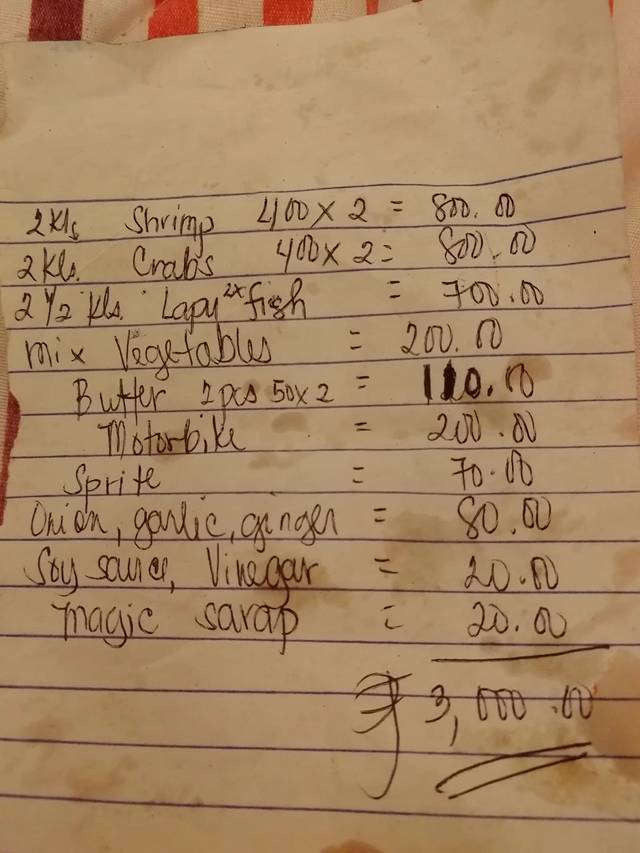 2kls Shrimp 400 x 2 = 800.00
2 Kls. Crabs 400 x 2 = 800.00
2 1/2 Kls. Lapu 2x fish = 700.00
mix Vegetables = 200.00
Butter 2 pcs 50 x 2 = 110.00
Motorbike = 200.00
Sprite = 70.00
Onion, garlic, ginger = 80.00
Soy sauce, Vinegar = 20.00
magic sarap = 20.00
₱ 3,000.00